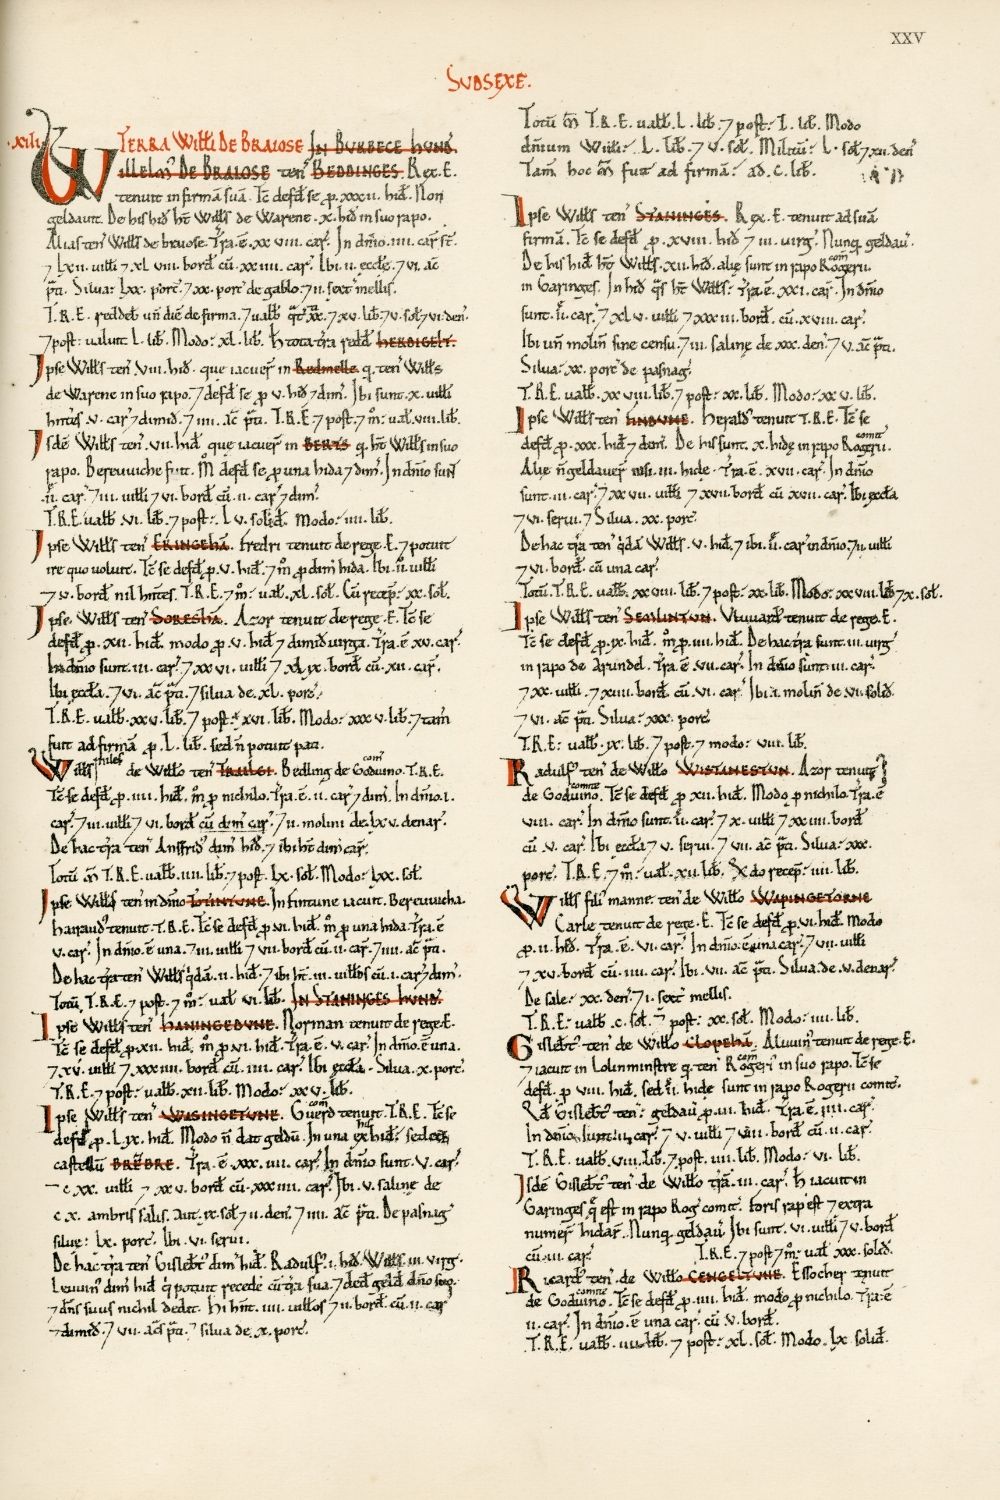 XXV
SUDSEXE.
.XIII. TERRA Willi De BRAIOSE IN BURBECE HUND.
Willelm' De BRAIOSE ten' BEDDINGES. Rex. E.
tenuit in firma sua. Tc defd se p xxxii. hid. Non
geldauit. De his hid ht Wills de Warene. x. hid in suo rapo.
Alias ten' Wills de braiose. Tra. e. xx viii. car. In dnio. iiii. car st.
7 lxii. uilli 7 xl viii. bord cu. xx iiii. car. Ibi. ii. eccle. 7 vi. ac
pti. Silua: lxx. porc. 7 xx. porc de gablo. 7 ii. sext mellis.
T. R. E. reddeb un die de firma. 7 ualb qt xx. 7 xv. lib. 7 v. sol 7 vi. den.
7 post: ualuit L. lib. Modo: xl. lib. H tota tra redd HERBIGELT.
Ipse Wills ten. VIII. hid. que iacuer in Redmelle q. ten Wills
de Warene in suo rapo. 7 defd se p v. hid 7 dim. Ibi sunt. x. uilli
hntes. v. car 7 dimid. 7 iiii. ac pti. T. R. E. 7 post. 7 m: ual. viii. lib.
Isde Wills ten. VII. hid. que iacuer in BERTS q. ht Wills in suo
rapo. Bereuuiche fuit. M defd se p una hida 7 dim. In dnio sunt
.ii. car. 7 iii. uilli 7 vi. bord cu. ii. car 7 dim.
T. R. E. ualb. vi. lib. 7 post: Lv. solid. Modo: iiii. lib.
Ipse Wills ten ERINGEHA. Fredri tenuit de rege. E. 7 potuit
ire quo uoluit. Tc se defd p. v. hid. 7 m p dim hida. Ibi. ii. uilli
7 v. bord nil hntes. T. R. E. 7 m: ual. xl. sol. Cu recep: xx. sol.
Ipse. Wills ten SORESHA. Azor tenuit de rege. E. Tc se
defd p. xii. hid. modo p. v. hid 7 dimid uirga. Tra. e xv. car.
In dnio sunt. iii. car. 7 xx vi. uilli 7 xl ix. bord cu. xii. car.
Ibi eccla. 7 vi. ac pti. 7 silua de. xl. porc.
T. R. E. ualb. xx v. lib. 7 post: xvi. lib. Modo: xxx v. lib. 7 tam
fuit ad firma p. L. lib. sed n potuit pati.
Wills miles de Willo ten TRAILGI. Bedling de Goduino com. T. R. E.
Tc se defd p. iiii. hid. m p nichilo. Tra. e. ii. car 7 dim. In dnio. i.
car. 7 iii. uilli 7 vi. bord cu dim car. 7 ii. molini de. lx v. denar.
De hac tra ten Ansfrid dim hid. 7 ibi ht dim car.
Totu m T. R. E. ualb. iiii. lib. 7 post. lx. sol. Modo: lxx. sol.
Ipse. Wills ten in dnio TOTINTUNE. In Findune iacuit. Bereuuicha.
Haraud tenuit. T. R. E. Tc se defd p. vi. hid. m p una hida. Tra e
v. car. In dnio. e una. 7 iii. uilli 7 vii. bord cu. ii. car. 7 iiii. ac pti.
De hac tra ten Wills qda. ii. hid. 7 ibi ht. iii. uillos cu. i. car 7 dim.
Totu. T. R. E. 7 post. 7 m: ual vi. lib. IN STANINGES HUND.
Ipse Wills ten HANINGEDUNE. Norman tenuit de rege. E.
Tc se defd p. xii. hid. m p. vi. hid. Tra. e. v. car. In dnio. e una.
7 xv. uilli 7 xxx iiii. bord cu. iiii. car. Ibi eccla. Silua. x. porc.
T. R. E. 7 post: ualb. xii. lib. Modo: xx v. lib.
Ipse Wills ten WASINGETUNE. Guerd com tenuit. T. R. E. Tc se
defd p. L ix. hid. Modo n dat geldu. In una ex his hid. sedet
castellu BREBRE. Tra. e. xxx. iiii. car. In dnio sunt. v. car.
7 c xx. uilli 7 xx v. bord cu. xxx iiii. car. Ibi. v. saline de
c x. ambris salis. aut. ix. sol 7 ii. den. 7 iiii. ac pti. De pasnag
silue: lx. porc. Ibi. vi. serui.
De hac tra ten Gislebt dim hid. Radulf. i. hid. Wills. iii. uirg.
Leuuin dim hid q potuit recede cu tra sua. 7 ded geld dno suo
7 dns suus nichil dedit. Hi hnt. iiii. uillos 7 ii. bord. cu. ii. car
7 dimid. 7 vii. acs pti. 7 silua de. x. porc.
Totu m T. R. E. ualb. L. lib. 7 post: L. lib. Modo
dnium Willi: L. lib. 7 v. sol. Militu: L. sol 7 xii. den
Tam hoc m fuit ad firma: ad. c. lib.
Ipse Wills ten STANINGES. Rex. E. tenuit ad sua
firma. Tc se defd p. xviii. hid 7 iii. uirg. Nunq geldau.
De his hid ht Wills. xii. hid. alie sunt in rapo Rogerii com
in Garinges. In hid qs ht Wills: Tra. e. xxi. car. In dnio
sunt. ii. car. 7 xl v. uilli 7 xxx iii. bord. cu. xviii. car.
Ibi un molin sine censu. 7 iii. saline de xxx. den. 7 v. ac pti.
Silua: xx. porc de pasnag.
T. R. E. ualb. xx viii. lib. 7 post: xx. lib. Modo: xx v. lib.
Ipse Wills ten FINDUNE. Herald tenuit T. R. E. Tc se
defd p. xxx. hid 7 dim. De his sunt. x. hide in rapo Rogerii comit.
Alie n geldauer nisi. iii. hide. Tra. e. xvii. car. In dnio
sunt. iii. car. 7 xx vii. uilli 7 xvii. bord cu xvii. car. Ibi eccla
7 vi. serui. 7 Silua. xx. porc.
De hac tra ten qda Wills. v. hid. 7 ibi. ii. car in dnio. 7 ii. uilli
7 vi. bord cu una car.
Totu. T. R. E. ualb. xx viii. lib. 7 post: xx. lib. Modo: xx viii. lib. 7 x. sol.
Ipse Wills ten SEMLINTUN. Vluuard tenuit de rege. E.
Tc se defd p. ix. hid. m p. iiii. hid. De hac tra sunt. iii. uirg
in rapo de Arundel. Tra. e. vii. car. In dnio sunt. iii. car.
7 xx. uilli. 7 xiiii. bord. cu. vi. car. Ibi. ii. molin de vi. solid.
7 vi. ac pti. Silua: xxx. porc
T. R. E: ualb. ix. lib. 7 post. 7 modo: viii. lib.
Radulf ten de Willo WISTANESTUN. Azor tenuit
de Goduino comite. Tc se defd p xii. hid. Modo p nichilo. Tra. e
viii. car. In dnio sunt. ii. car. 7 x. uilli 7 xx iiii. bord
cu. v. car. Ibi eccla 7 v. serui. 7 vii. ac pti. Silua: xxx.
porc. T. R. E. 7 m: ual. xii. lib. Qdo recep: iiii. lib.
Wills fili manne. ten de Willo WAPINGETORNE
Carle tenuit de rege. E. Tc se defd p. vi. hid. modo
p. ii. hid. Tra. e. vi. car. In dnio. e una car. 7 vii. uilli
7 xv. bord cu. iiii. car. Ibi. vii. ac pti. Silua. de. v. denar.
De sale: xx. den. 7 i. sext mellis.
T. R. E: ualb. c. sol. 7 post: xx. sol. Modo: iiii. lib.
Gislebt ten de Willo CLOPEHA. Aluuin tenuit de rege. E.
7 iacuit in Lolinminstre q. ten Rogeri com in suo rapo. Tc se
defd. p viii. hid. sed. ii. hide sunt in rapo Rogerii comit.
Qd Gislebt ten: geldau p. iii. hid. Tra. e. iiii. car.
In dnio sunt. ii. car. 7 v. uilli 7 viii. bord cu. ii. car.
T. R. E. ualb. viii. lib. 7 post. iiii. lib. Modo: vi. lib.
Isde Gislebt ten de Willo tra. iii. car. H iacuit in
Garinges. q est in rapo Rog comit. Foris rap est 7 extra
numer hidar. Nunq geldau. Ibi sunt. vi. uilli 7 v. bord
cu. iii. car. T. R. E. 7 post 7 m: ual xxx. solid.
Ricard ten. de Willo CENGELTUNE. Essocher tenuit
de Goduino comite. Tc se defd p. iiii. hid. modo p nichilo. Tra. e
ii. car. In dnio. e una car. cu v. bord.
T. R. E. ualb. iiii. lib. 7 post: xl. sol. Modo. lx. solid.